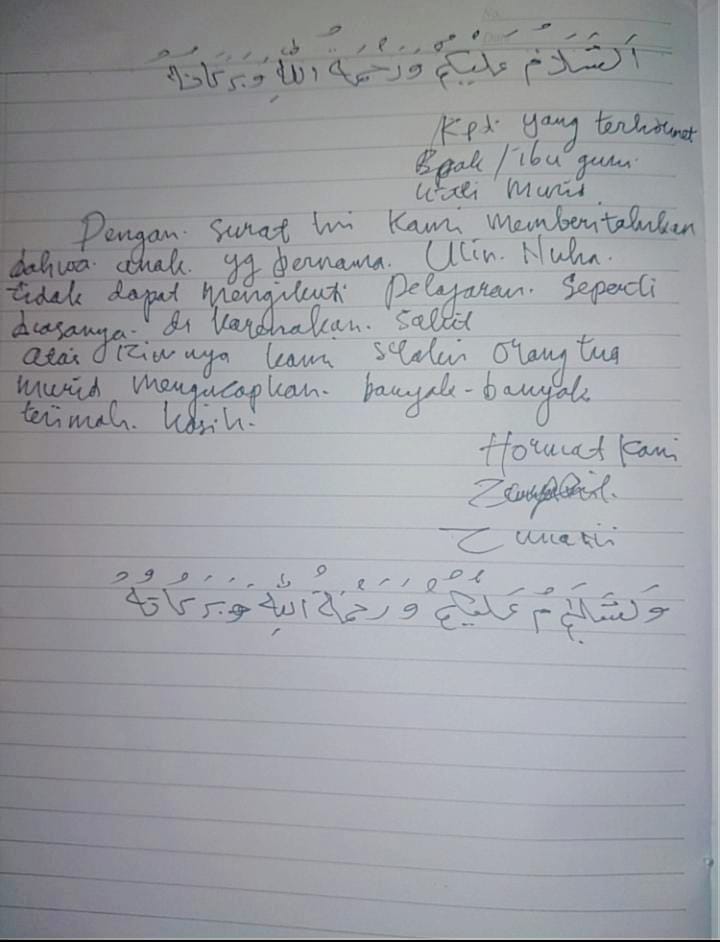 اَلسَّلَامُ عَلَيْكُمْ وَرَحْمَةُ اللهِ وَبَرَكَاتُهُ
Kpd. yang terhormat
Bpak / ibu guru.
Wali Murid
Dengan. Surat ini Kami memberitahukan
bahwa. anak. yg bernama. Ulin. Nuha.
tidak dapat mengikuti pelajaran. Seperti
biasanya. di karenakan. Sakit
atas izinnya kami selaku orang tua
murid mengucapkan. banyak-banyak
terimah. kasih.
Hormat Kami
وَلسَّلَامُ عَلَيْكُمْ وَرَحْمَةُ اللهِ وَبَرَكَاتُهُ